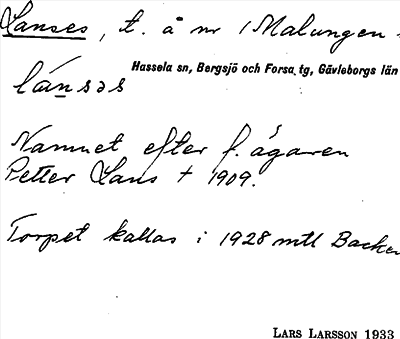 Lanses, t. å nr 1 Malungen
Hassela sn, Bergsjö och Forsa tg, Gävleborgs län
lánsəs
Namnet efter f. ägaren
Petter Lans † 1909.
Torpet kallas i 1928 mtl Backen
LARS LARSSON 1933